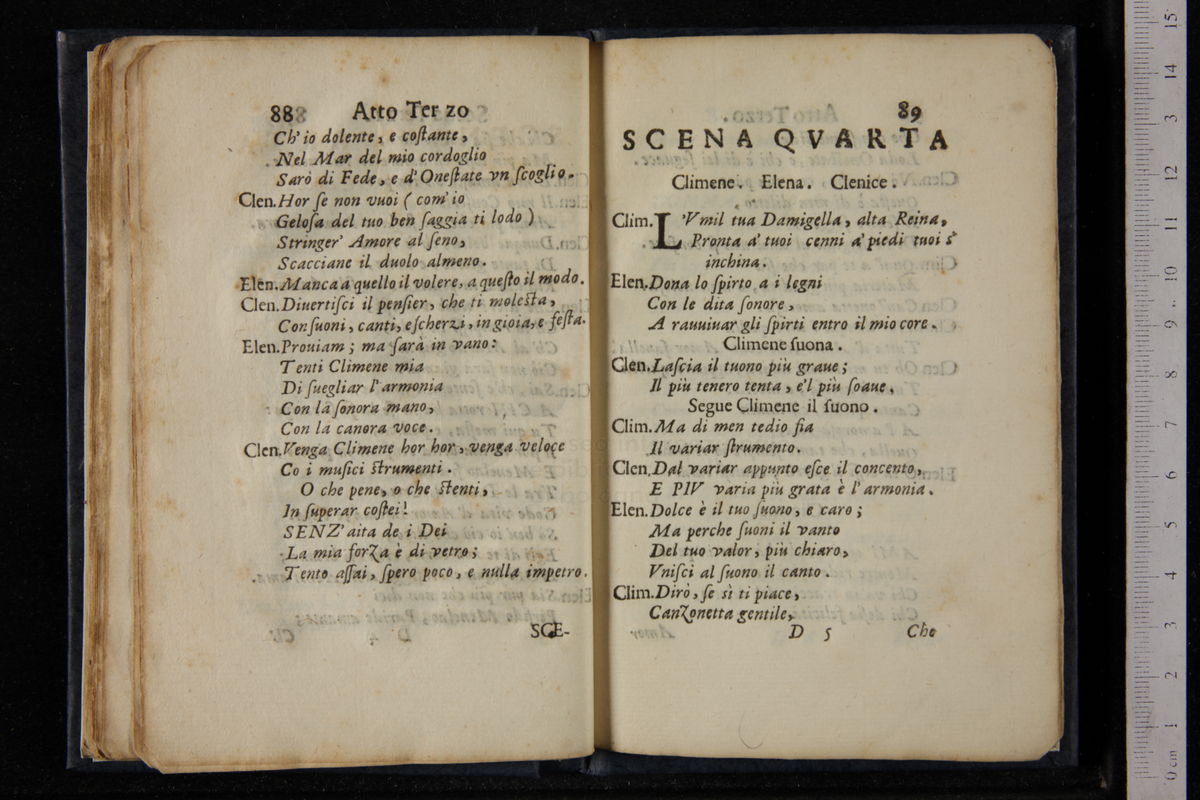 88 Atto Ter zo
Ch' io dolente, e coſtante,
Nel Mar del mio cordoglio
Sarò di Fede, e d' Oneſtate vn ſcoglio.
Clen. Hor ſe non vuoi ( com' io
Geloſa del tuo ben ſaggia ti lodo )
Stringer' Amore al ſeno,
Scacciane il duolo almeno.
Elen. Manca à quello il volere, a queſto il modo.
Clen. Diuertiſci il penſier, che ti moleſta,
Con ſuoni, canti, e ſcherzi, in gioia, e feſta.
Elen. Prouiam; ma ſarà in vano:
Tenti Climene mia
Di ſuegliar l' armonia
Con la ſonora mano,
Con la canora voce.
Clen. Venga Climene hor hor, venga veloçe
Co i muſici ſtrumenti.
O che pene, o che ſtenti,
In ſuperar coſtei!
SENZ' aita de i Dei
La mia forza è di vetro;
Tento aſſai, ſpero poco, e nulla impetro.
SCE-
89
SCENA QVARTA
Climene. Elena. Clenice.
Clim. L 'Vmil tua Damigella, alta Reina,
Pronta a' tuoi cenni a' piedi tuoi s'
inchina.
Elen. Dona lo ſpirto a i legni
Con le dita ſonore,
A rauuiuar gli ſpirti entro il mio core.
Climene ſuona.
Clen. Laſcia il tuono più graue;
Il più tenero tenta, e'l più ſoaue.
Segue Climene il ſuono.
Clim. Ma di men tedio fia
Il variar ſtrumento.
Clen. Dal variar appunto eſce il concento,
E PIV varia più grata è l' armonia.
Elen. Dolce è il tuo ſuono, e caro;
Ma perche ſuoni il vanto
Del tuo valor, più chiaro,
Vniſci al ſuono il canto.
Clim. Dirò, ſe sì ti piace,
Canzonetta gentile,
D 5 Che
0 cm 1 2 3 4 5 6 7 8 9 10 11 12 13 14 15